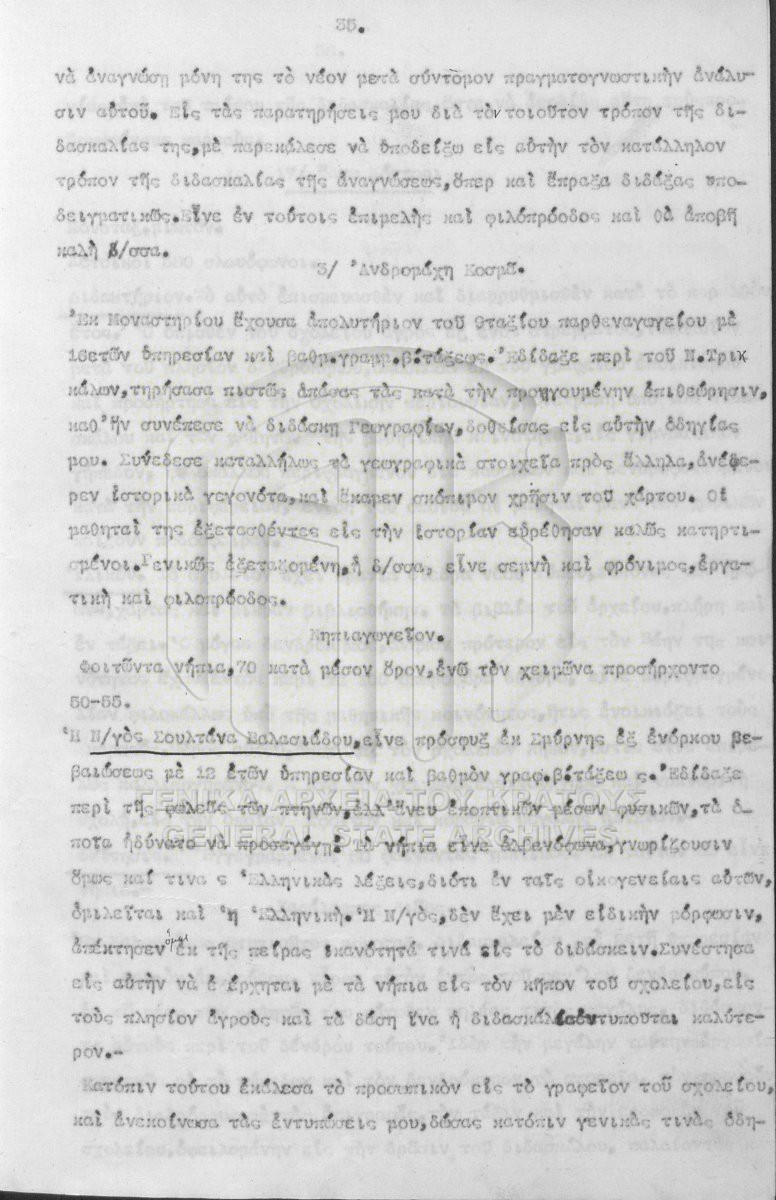 35.
νὰ ἀναγνώσῃ μόνη της τὸ νέον μετὰ σύντομον πραγματογνωστικὴν ἀνάλυ-
σιν αὐτοῦ. Εἰς τὰς παρατηρήσεις μου διὰ τὸν τοιοῦτον τρόπον τῆς δι-
δασκαλίας της,μὲ παρεκάλεσε νὰ ὑποδείξω εἰς αὐτὴν τὸν κατάλληλον
τρόπον τῆς διδασκαλίας τῆς ἀναγνώσεως,ὅπερ καὶ ἔπραξα διδάξας υπο-
δειγματικῶς.Εἶνε ἐν τούτοις ἐπιμελὴς καὶ φιλόπρόοδος καὶ θὰ ἀποβῇ
καλὴ δ/σσα.
3/ Ἀνδρομάχη Κοσμᾶ.
Ἐκ Μοναστηρίου ἔχουσα ἀπολυτήριον τοῦ 9ταξίου παρθεναγωγείου μὲ
16ετῶν ὑπηρεσίαν καὶ βαθμ.γραμμ.β!τάξεως. Ἐδίδαξε περὶ τοῦ Ν.Τρικ
κάλων,τηρήσασα πιστῶς ἁπάσας τὰς κατὰ τὴν προηγουμένην ἐπιθεώρησιν,
καθ' ἣν συνέπεσε νὰ διδάσκῃ Γεωγραφίαν,δοθείσας εἰς αὐτὴν ὁδηγίας
μου. Συνέδεσε καταλλήλως τὰ γεωγραφικὰ στοιχεῖα πρὸς ἄλληλα,ἀνέφε-
ρεν ἱστορικὰ γεγονότα,καὶ ἔκαμεν σκόπιμον χρῆσιν τοῦ χάρτου. Οἱ
μαθηταί της ἐξετασθέντες εἰς τὴν ἱστορίαν εὑρέθησαν καλῶς κατηρτι-
σμένοι.Γενικῶς ἐξεταζομένη,ἡ δ/σσα, εἶνε σεμνὴ καὶ φρόνιμος,ἐργα-
τικὴ καὶ φιλοπρόοδος.
Νηπιαγωγεῖον.
Φοιτῶντα νήπια,70 κατὰ μέσον ὅρον,ἐνῶ τὸν χειμῶνα προσήρχοντο
50-55.
Ἡ Ν/γὸς Σουλτάνα Βαλασιάδου,εἶνε πρόσφυξ ἐκ Σμύρνης ἐξ ἐνόρκου βε-
βαιώσεως μὲ 12 ἐτῶν ὑπηρεσίαν καὶ βαθμὸν γραφ.β!τάξεω ς. Ἐδίδαξε
περὶ τῆς φωλεᾶς τῶν πτηνῶν,ἀλλ' ἄνευ ἐποπτικῶν μέσων φυσικῶν,τὰ ὁ-
ποῖα ἠδύνατο νὰ προσαγάγῃ. Τὰ νήπια εἶνε ἀλβανόφωνα,γνωρίζουσιν
ὅμως καί τινα ς Ἑλληνικὰς λέξεις,διότι ἐν ταῖς οἰκογενείαις αὐτῶν,
ὁμιλεῖται καὶ ἡ Ἑλληνική. Ἡ Ν/γὸς,δὲν ἔχει μὲν εἰδικὴν μόρφωσιν,
ἀπέκτησεν ὅμως ἐκ τῆς πείρας ἱκανότητά τινὰ εἰς τὸ διδάσκειν.Συνέστησα
εἰς αὐτὴν νὰ ἐξέρχηται μὲ τὰ νήπια εἰς τὸν κῆπον τοῦ σχολείου,εἰς
τοὺς πλησίον ἀγροὺς καὶ τὰ δάση ἵνα ἡ διδασκαλία ἐντυποῦται καλύτε-
ρον.-
Κατόπιν τούτου ἐκάλεσα τὸ προσωπικὸν εἰς τὸ γραφεῖον τοῦ σχολείου,
καὶ ἀνεκοίνωσα τὰς ἐντυπώσεις μου,δώσας κατόπιν γενικὰς τινὰς ὁδη-
ΓΕΝΙΚΑ ΑΡΧΕΙΑ ΤΟΥ ΚΡΑΤΟΥΣ
GENERAL STATE ARCHIVES